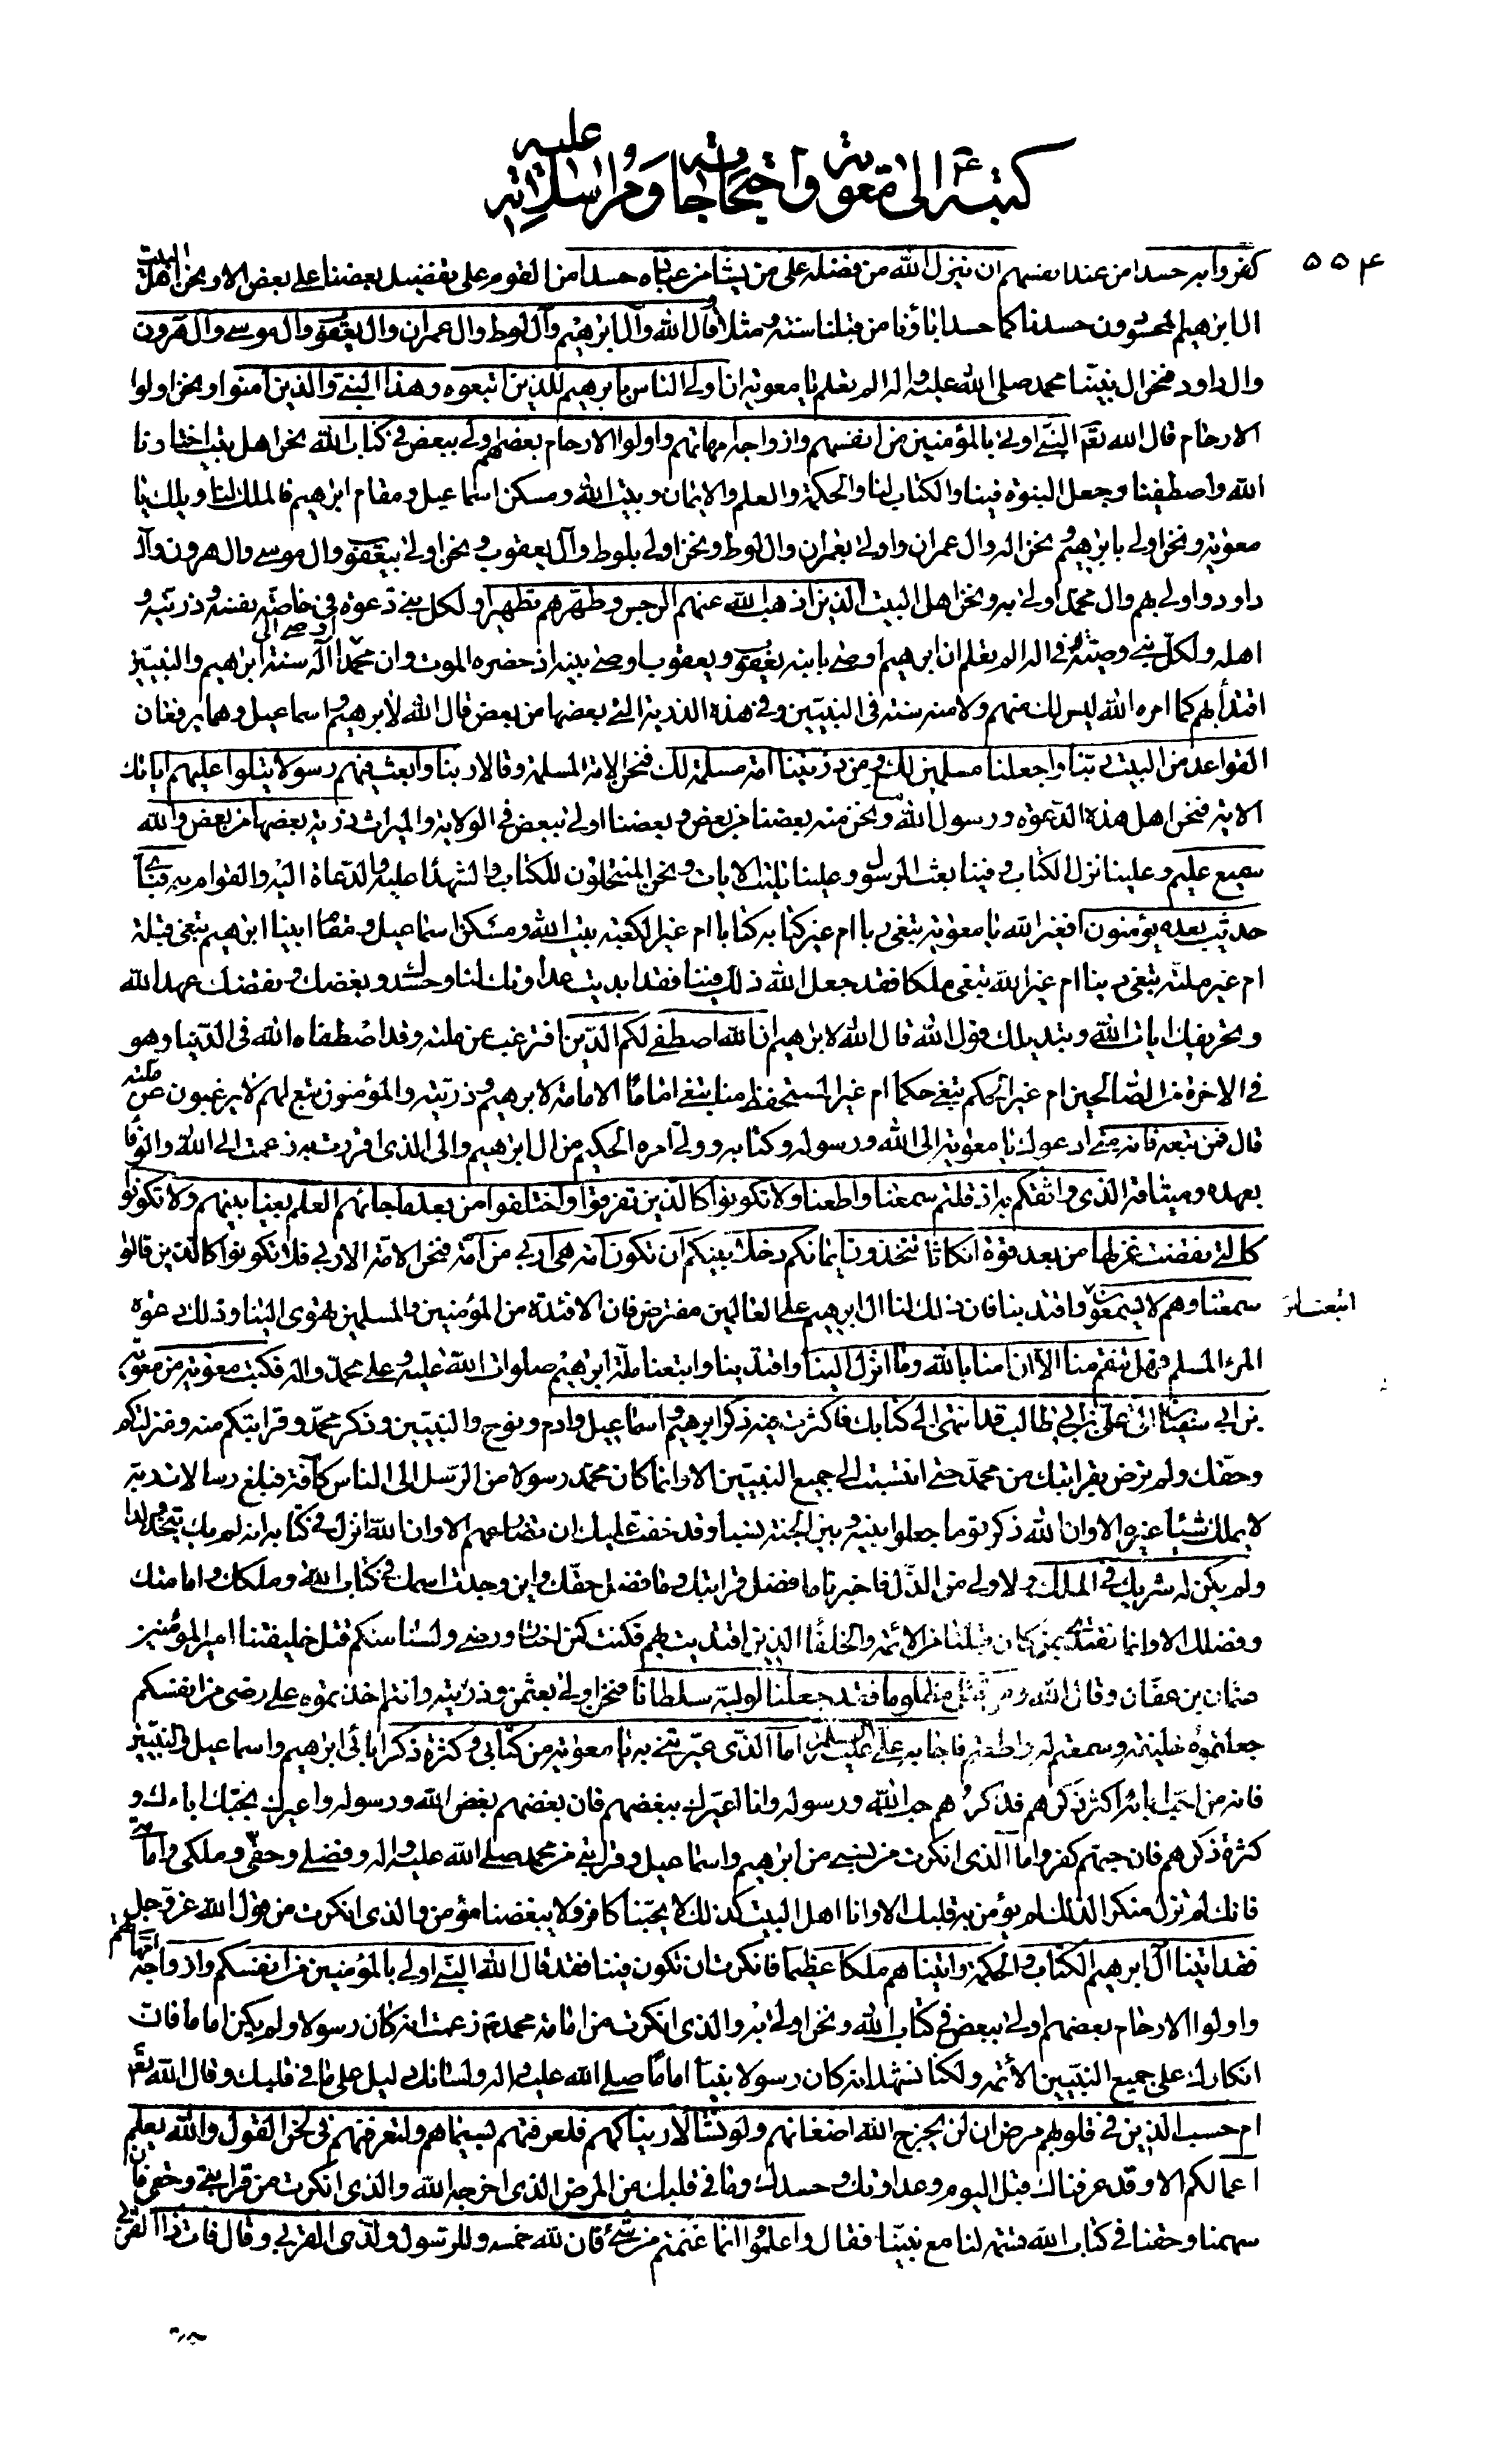 كتبه ع الى معوية واحتجاجاته عليه ومراسلاته
٥٥٤
كفروا به حسدا من عند انفسهم ان ينزل الله من فضله على من يشاء من عباده حسدا من القوم على تفضيل بعضنا على بعض الا ونحن اهل البيت
ال ابرهيم المحسودون حسدنا كما حسد اباؤنا من قبلنا سنة ومثلا قال الله وآل ابرهيم وآل لوط وال عمران وال يعقوب وال موسى وال هرون
وال داود فنحن ال نبينا محمد صلى الله عليه واله الم تعلم يا معوية ان اولى الناس بابرهيم للذين اتبعوه وهذا النبي والذين امنوا ونحن اولوا
الارحام قال الله تعم النبي اولى بالمؤمنين من انفسهم وازواجه امهاتهم واولوا الارحام بعضهم اولى ببعض في كتاب الله نحن اهل بيت اختارنا
الله واصطفينا وجعل النبوة فينا والكتاب لنا والحكمة والعلم والايمان وبيت الله ومسكن اسماعيل ومقام ابرهيم فالملك لنا ويلك يا
معوية ونحن اولى بابرهيم ونحن اله وال عمران واولى بعمران وال لوط ونحن اولى بلوط وآل يعقوب ونحن اولى بيعقوب وال موسى وال هرون وآل
داود واولى بهم وال محمد اولى به ونحن اهل البيت الذين اذهب الله عنهم الرجس وطهرهم تطهيرا ولكل نبي دعوة في خاصة نفسه وذريته و
اهله ولكل نبي وصية في اله الم تعلم ان ابرهيم اوصى بابنه يعقوب ويعقوب اوصى بنيه اذ حضره الموت وان محمدا اوصى الى آله سنة ابرهيم والنبيين
اقتداء بهم كما امره الله ليس لك منهم ولا منه سنة في النبيين وفي هذه الذرية التي بعضها من بعض قال الله لابرهيم واسماعيل وهما يرفعان
القواعد من البيت ربنا واجعلنا مسلمين لك ومن ذريتنا امة مسلمة لك فنحن الامة المسلمة وقالا ربنا وابعث فيهم رسولا يتلوا عليهم اياتك
الاية فنحن اهل هذه الدعوة ورسول الله منا ونحن منه بعضنا من بعض وبعضنا اولى ببعض في الولاية والميراث ذرية بعضها من بعض والله
سميع عليم وعلينا نزل الكتاب وفينا بعث الرسول وعلينا تليت الايات ونحن المنتحلون للكتاب والشهداء عليه والدعاة اليه والقوام به فباي
حديث بعده يؤمنون افغير الله يا معوية تبغي ربا ام غير كتابه كتابا ام غير الكعبة بيت الله ومسكن اسماعيل ومقام ابينا ابرهيم تبغي قبلة
ام غير ملته تبغي دينا ام غير الله تبغي ملكا فقد جعل الله ذلك فينا فقد ابديت عداوتك لنا وحسدك وبغضك ونقضك عهد الله
وتحريفك ايات الله وتبديلك قول الله قال الله لابرهيم ان الله اصطفى لكم الدين افترغب عن ملته وقد اصطفاه الله في الدنيا وهو
في الاخرة من الصالحين ام غير الحكم تبغي حكما ام غير المستحفظ منا تبغي اماما الامامة لابرهيم وذريته والمؤمنون تبع لهم لا يرغبون عن ملته
قال فمن تبعه فانه مني ادعوك يا معوية الى الله ورسوله وكتابه وولي امره الحكيم من ال ابرهيم والى الذي اقررت به زعمت الى الله والوفاء
بعهده وميثاقه الذي واثقكم به اذ قلتم سمعنا واطعنا ولا تكونوا كالذين تفرقوا واختلفوا من بعد ما جائهم العلم بغيا بينهم ولا تكونوا
كالتي نقضت غزلها من بعد قوة انكاثا تتخذون ايمانكم دخلا بينكم ان تكون امة هي اربى من امة فنحن الامة الاربى فلا تكونوا كالذين قالوا
سمعنا وهم لا يسمعون واقتد بنا فان ذلك لنا ال ابرهيم على العالمين مفترض فان الافئدة من المؤمنين والمسلمين تهوى الينا وذلك دعوة
المرء المسلم فهل تنقم منا الا ان امنا بالله وما انزل الينا واقتدينا واتبعنا ملة ابرهيم صلوات الله عليه وعلى محمد واله فكتب معوية من معوية
بن ابي سفيان الى علي بن ابي طالب قد انتهى الي كتابك فاكثرت فيه ذكر ابرهيم واسماعيل وادم ونوح والنبيين وذكر محمد وقرابتكم منه ومنزلتكم
وحقك ولم ترض بقرابتك من محمد حتى انتسبت الى جميع النبيين الا وانما كان محمد رسولا من الرسل الى الناس كافة فبلغ رسالات ربه
لا يملك شيئا غيره الا وان الله ذكر قوما جعلوا بينه وبين الجنة نسبا وقد خفت عليك ان تضاهيهم الا وان الله انزل في كتابه انه لم يك يتخذ ولدا
ولم يكن له شريك في الملك ولا ولي من الذل فاخبرنا ما فضل قرابتك وما فضل حقك واين وجدت اسمك في كتاب الله وملكك وامامتك
وفضلك الا وانما نقتدي بمن كان قبلنا من الائمة والخلفاء الذين اقتديت بهم فكنت كمن اختار ورضي ولسنا منكم قتل خليفتنا امير المؤمنين
عثمان بن عفان وقال الله ومن قتل مظلوما فقد جعلنا لوليه سلطانا فنحن اولى بعثمن وذريته وانتم اخذتموه على رضى من انفسكم
جعلتموه خليفة وسمعتم له واطعتم فاجابه علي عليه السلم اما الذي عيرتني به يا معوية من كتابي وكثرة ذكر ابائي ابرهيم واسماعيل والنبيين
فانه من احب اباءه اكثر ذكرهم فذكرهم حب الله ورسوله وانا اعيرك ببغضهم فان بغضهم بغض الله ورسوله واعيرك بحبك اباءك و
كثرة ذكرهم فان حبهم كفر واما الذي انكرت من نسبي من ابرهيم واسماعيل وقرابتي من محمد صلى الله عليه واله وفضلي وحقي وملكي وامامتي
فانك لم تزل منكرا لذلك لم يؤمن به قلبك الا وانا اهل البيت كذلك لا يحبنا كافر ولا يبغضنا مؤمن والذي انكرت من قول الله عز وجل
فقد اتينا آل ابرهيم الكتاب والحكمة واتيناهم ملكا عظيما فانكرت ان تكون فينا فقد قال الله النبي اولى بالمؤمنين من انفسكم وازواجه امهاتهم
واولوا الارحام بعضهم اولى ببعض في كتاب الله ونحن اولى به والذي انكرت من امامة محمد ص زعمت انه كان رسولا ولم يكن اماما فان
انكارك على جميع النبيين الائمة ولكنا نشهد انه كان رسولا نبيا اماما صلى الله عليه واله ولسانك دليل على ما في قلبك وقال الله تعم
ام حسب الذين في قلوبهم مرض ان لن يخرج الله اضغانهم ولو نشاء لاريناكهم فلعرفتهم بسيماهم ولتعرفنهم في لحن القول والله يعلم
اعمالكم الا وقد عرفناك قبل اليوم وعداوتك وحسدك وما في قلبك من المرض الذي اخرجه الله والذي انكرت من قرابتي وحقي فان
سهمنا وحقنا في كتاب الله قسمه لنا مع نبينا فقال واعلموا انما غنمتم من شئ فان لله خمسه وللرسول ولذي القربى وقال فات ذا القربى